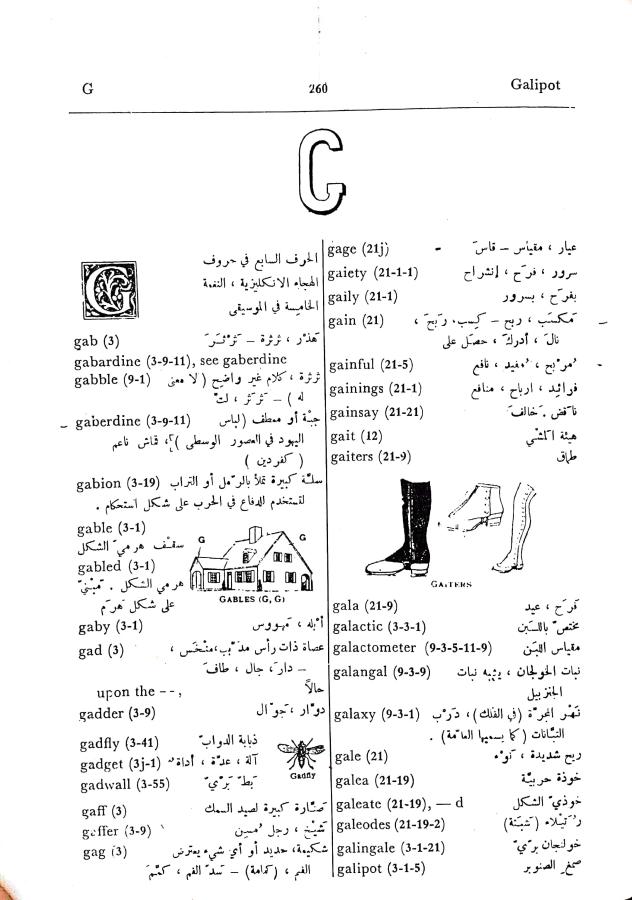 G 260 Galipot
G
G
الحرف السابع في حروف
الهجاء الانكليزية ، النغمة
الخامسة في الموسيقى
gab (3) هذر ، ثرثرة – ثرثر
gabardine (3-9-11), see gaberdine
gabble (9-1) ثرثرة ، كلام غير واضح ( لا معنى
له ) – ثرثر ، لت
gaberdine (3-9-11) جبّة أو معطف (لباس
اليهود في العصور الوسطى )، قماش ناعم
( كفردين )
gabion (3-19) سلّة كبيرة تملأ بالرمل أو التراب
لتستخدم للدفاع في الحرب على شكل استحكام .
gable (3-1)
سقف هرميّ الشكل
gabled (3-1)
هرمي الشكل . مبنيّ
على شكل هرم
G G
GABLES (G, G)
gaby (3-1) أبله ، مهووس
gad (3) عصاة ذات رأس مدبب، منخس ،
– دار ، جال ، طاف
upon the - -, حالاً
gadder (3-9) دوّار ، جوّال
gadfly (3-41) ذبابة الدوابّ
gadget (3j-1) آلة ، عدّة ، أداة
Gadfly
gadwall (3-55) بطّ برّيّ
gaff (3) صنّارة كبيرة لصيد السمك
geffer (3-9) شيخ ، رجل مسن
gag (3) شكيمة، حديد أو أي شيء يعترض
الفم ، (كمامة) – سدّ الفم ، كتم
gage (21j) - عيار ، مقياس – قاس
gaiety (21-1-1) سرور ، فرح ، إنشراح
gaily (21-1) بفرح ، بسرور
gain (21) مكسب ، ربح – كسب، ربح ،
نال ، أدرك ، حصل على
gainful (21-5) مربح ، مفيد ، نافع
gainings (21-1) فوائد ، ارباح ، منافع
gainsay (21-21) ناقض . خالف
gait (12) هيئة المشي
gaiters (21-9) طماق
GAITERS
gala (21-9) فرح ، عيد
galactic (3-3-1) مختصّ باللبن
galactometer (9-3-5-11-9) مقياس اللبن
galangal (9-3-9) نبات الخولجان ، يشبه نبات
الجنزبيل
galaxy (9-3-1) نهر المجرّة (في الفلك) ، درب
التبّانات ( كما يسميها العامّة ) .
gale (21) ريح شديدة ، نوء
galea (21-19) خوذة حربيّة
galeate (21-19), — d خوذيّ الشكل
galeodes (21-19-2) رتيلاء (شبثة)
galingale (3-1-21) خولنجان برّيّ
galipot (3-1-5) صمغ الصنوبر